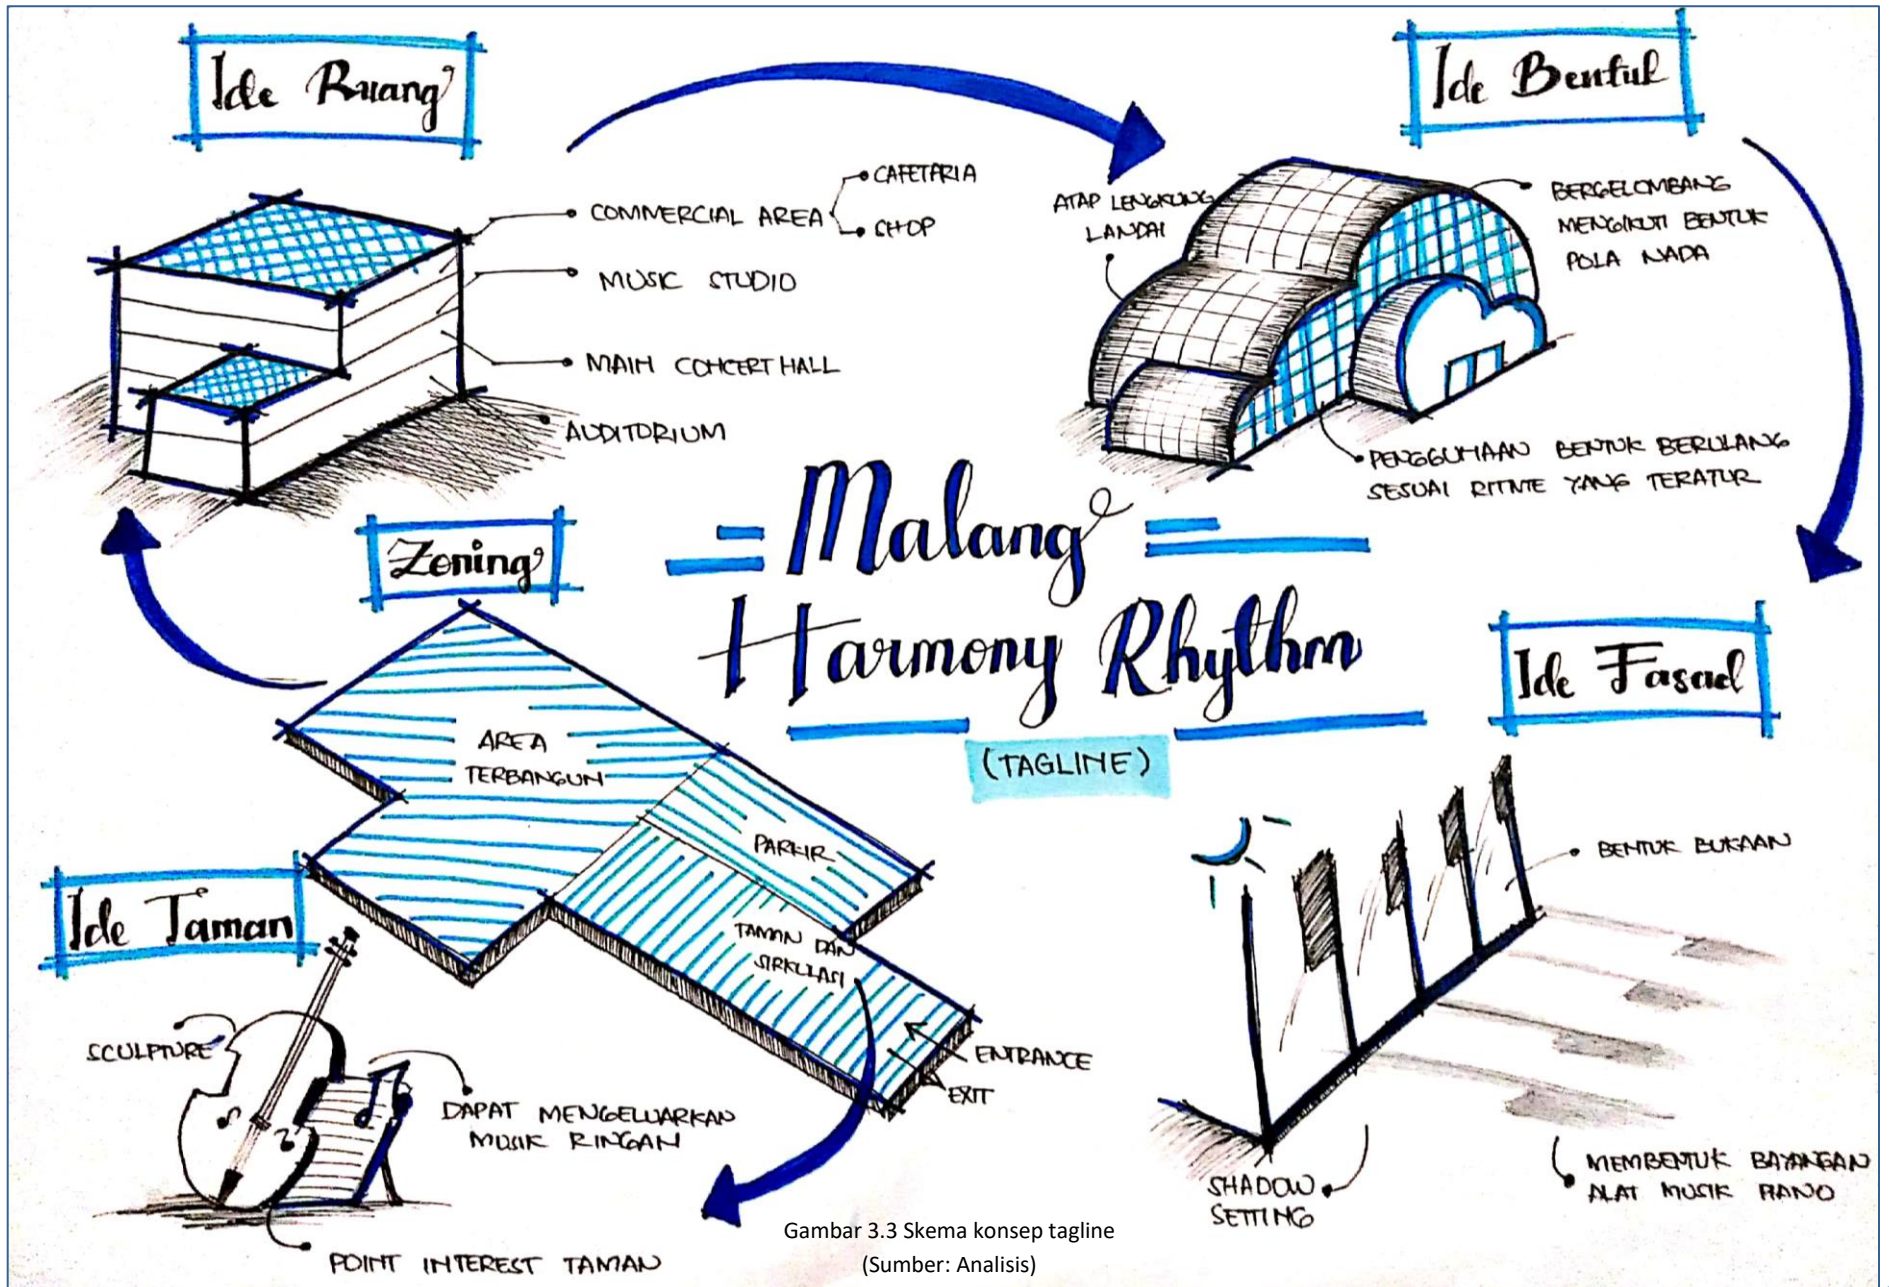 Ide Ruang
COMMERCIAL AREA
CAFETARIA
SHOP
MUSIC STUDIO
MAIN CONCERT HALL
AUDITORIUM
Ide Bentuk
ATAP LENGKUNG
LANDAI
BERGELOMBANG
MENGIKUTI BENTUK
POLA NADA
PENGGUNAAN BENTUK BERULANG
SESUAI RITME YANG TERATUR
Malang
Harmony Rhythm
(TAGLINE)
Zoning
AREA
TERBANGUN
PARKIR
TAMAN DAN
SIRKULASI
ENTRANCE
EXIT
Ide Fasad
BENTUK BUKAAN
SHADOW
SETTING
MEMBENTUK BAYANGAN
ALAT MUSIK PIANO
Ide Taman
SCULPTURE
DAPAT MENGELUARKAN
MUSIK RINGAN
POINT INTEREST TAMAN
Gambar 3.3 Skema konsep tagline
(Sumber: Analisis)